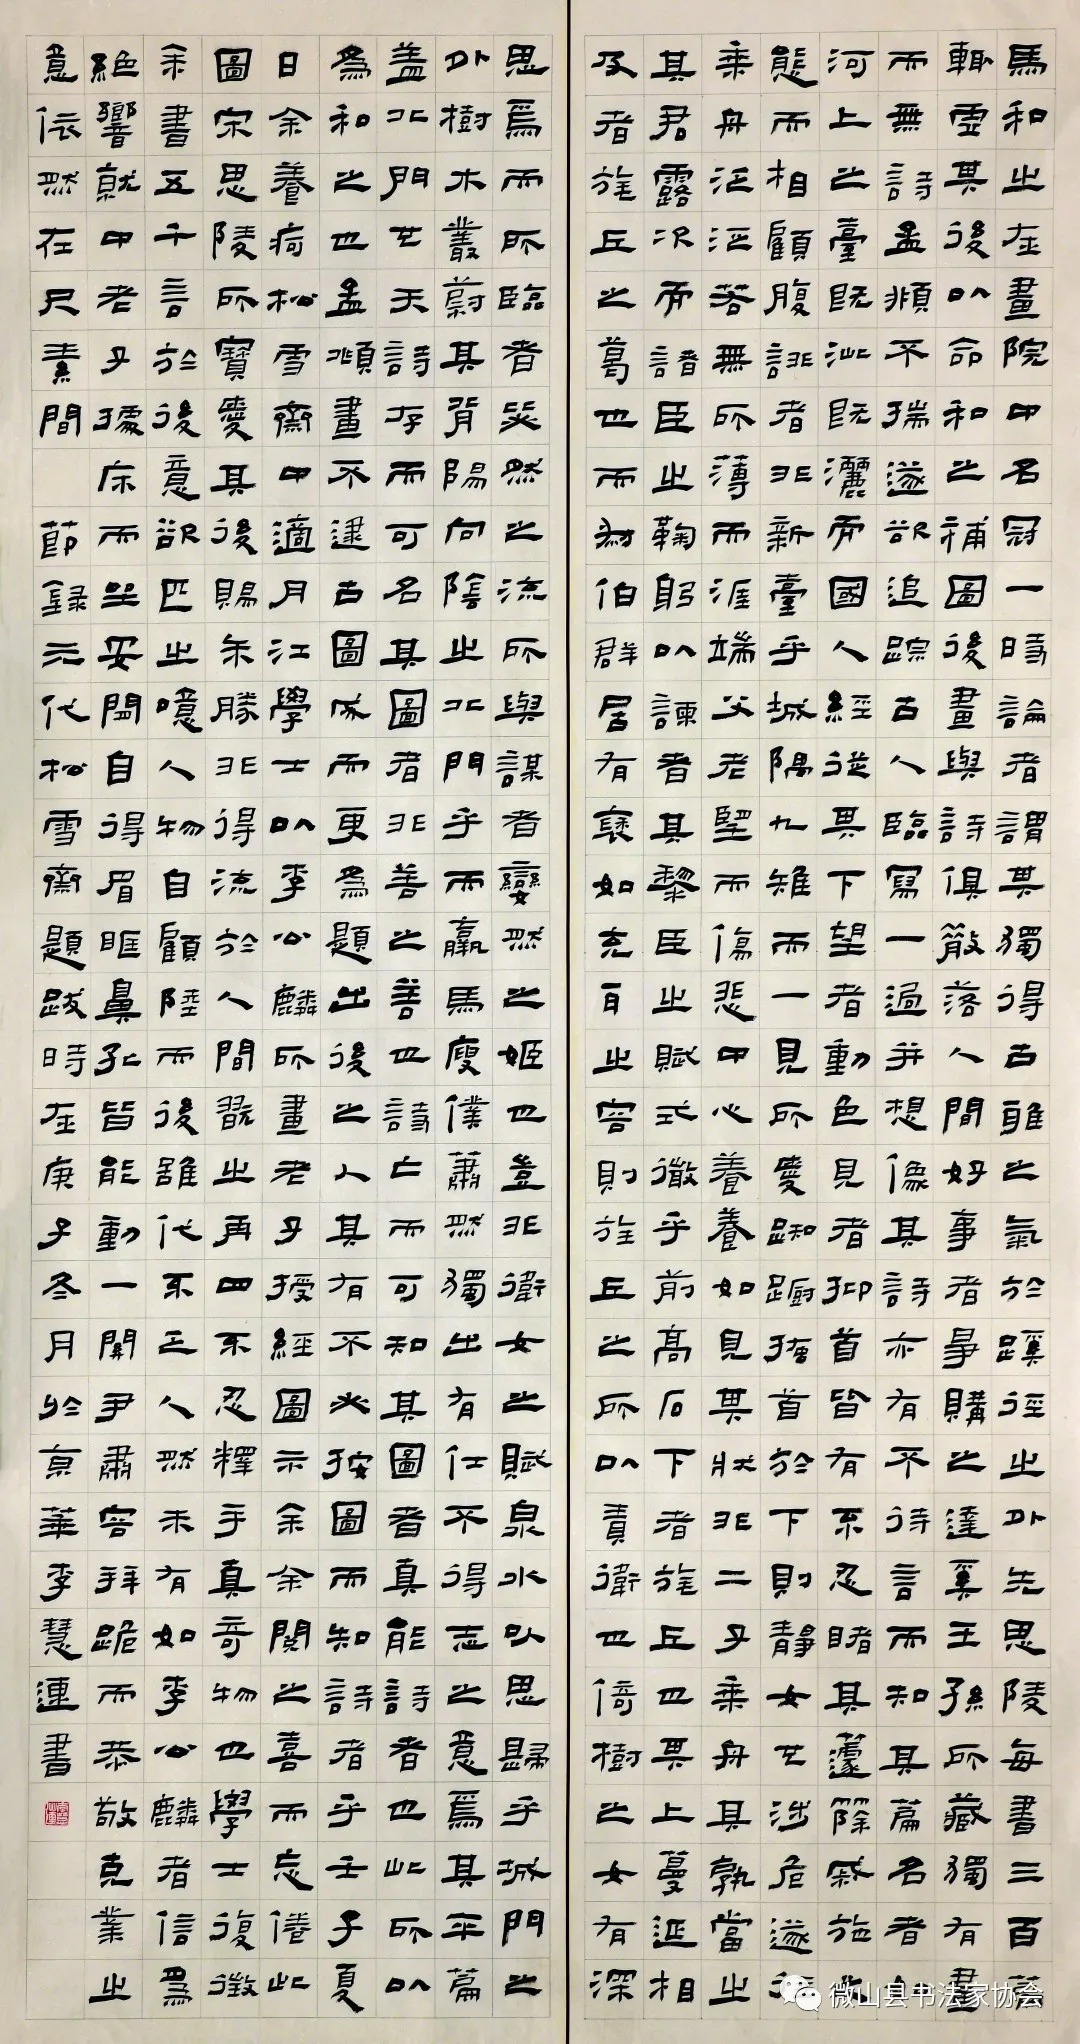 馬和之在畫院中名冠一時論者謂其獨得古雅之氣於蹊徑之外先思陵每書三百篇
輒虛其後以命和之補圖後畫與詩俱散落人間好事者爭購之達冀王孫所藏獨有畫
而無詩孟頫不揣遂欲追踪古人臨寫一過并想像其詩亦有不待言而知其篇名者
河上之臺既泚既灑而國人經從其下望者動色見者抑首皆有不忍睹其蘧篨戚施
態而相顧腹誹者非新臺乎城隅九雉而一見所愛踟躕搔首於下則靜女也涉危遂
乘舟泛泛若無所薄而涯端父老望而傷悲中心養養如見其狀非二子乘舟其孰當之
其君露次而諸臣之鞠躬以諫者其黎臣之賦式微乎前高后下者旄丘也其上蔓延相
及者旄丘之葛也而為伯群居有褎如充耳之容則旄丘之所以責衛也倚樹之女有深
思焉而所臨者泌然之流所與謀者孌然之姬也豈非衛女之賦泉水以思歸乎城門之
外樹木叢蔚其背陽向陰之北門乎而羸馬瘦僕蕭然獨出有仕不得志之意焉其平篇
蓋北門也夫詩存而可名其圖者非善之善也詩亡而可知其圖者真能詩者也此所以
為和之也孟頫畫不逮古圖成而更為題出後之人其有不必按圖而知詩者乎壬子夏
日余養痾松雪齋中適月江學士以李公麟所畫老子授經圖示余余閱之喜而忘倦此
圖宋思陵所寶愛其後賜朱勝非得流於人間翫之再四不忍釋手真奇物也學士復徵
余書五千言於後意欲匹之噫人物自顧陸而後雖代不乏人然未有如李公麟者信為
絕響就中老子據床而坐安閒自得眉眶鼻孔皆能動一關尹肅容拜跪而恭敬克業之
意依然在尺素間 節錄元代松雪齋題跋時在庚子冬月於京華李慧連書
微山县书法家协会